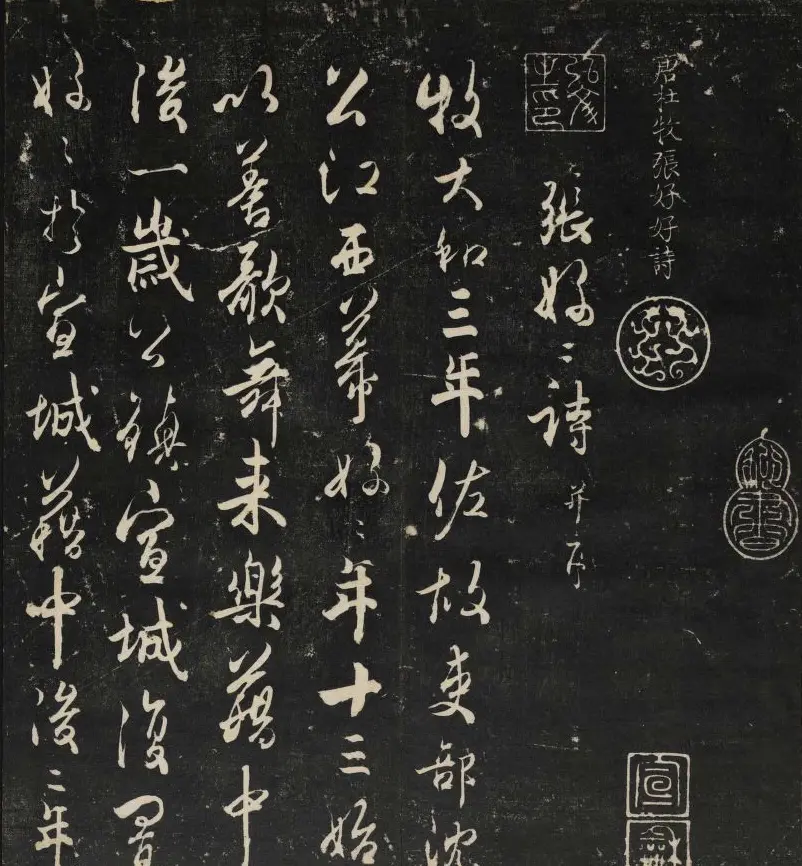 唐杜牧張好好詩
張好〻詩 并序
牧大和三年佐故吏部沈
公江西幕好〻年十三始
以善歌舞来樂籍中
後一歲公鎮宣城復置
好〻於宣城籍中後二年